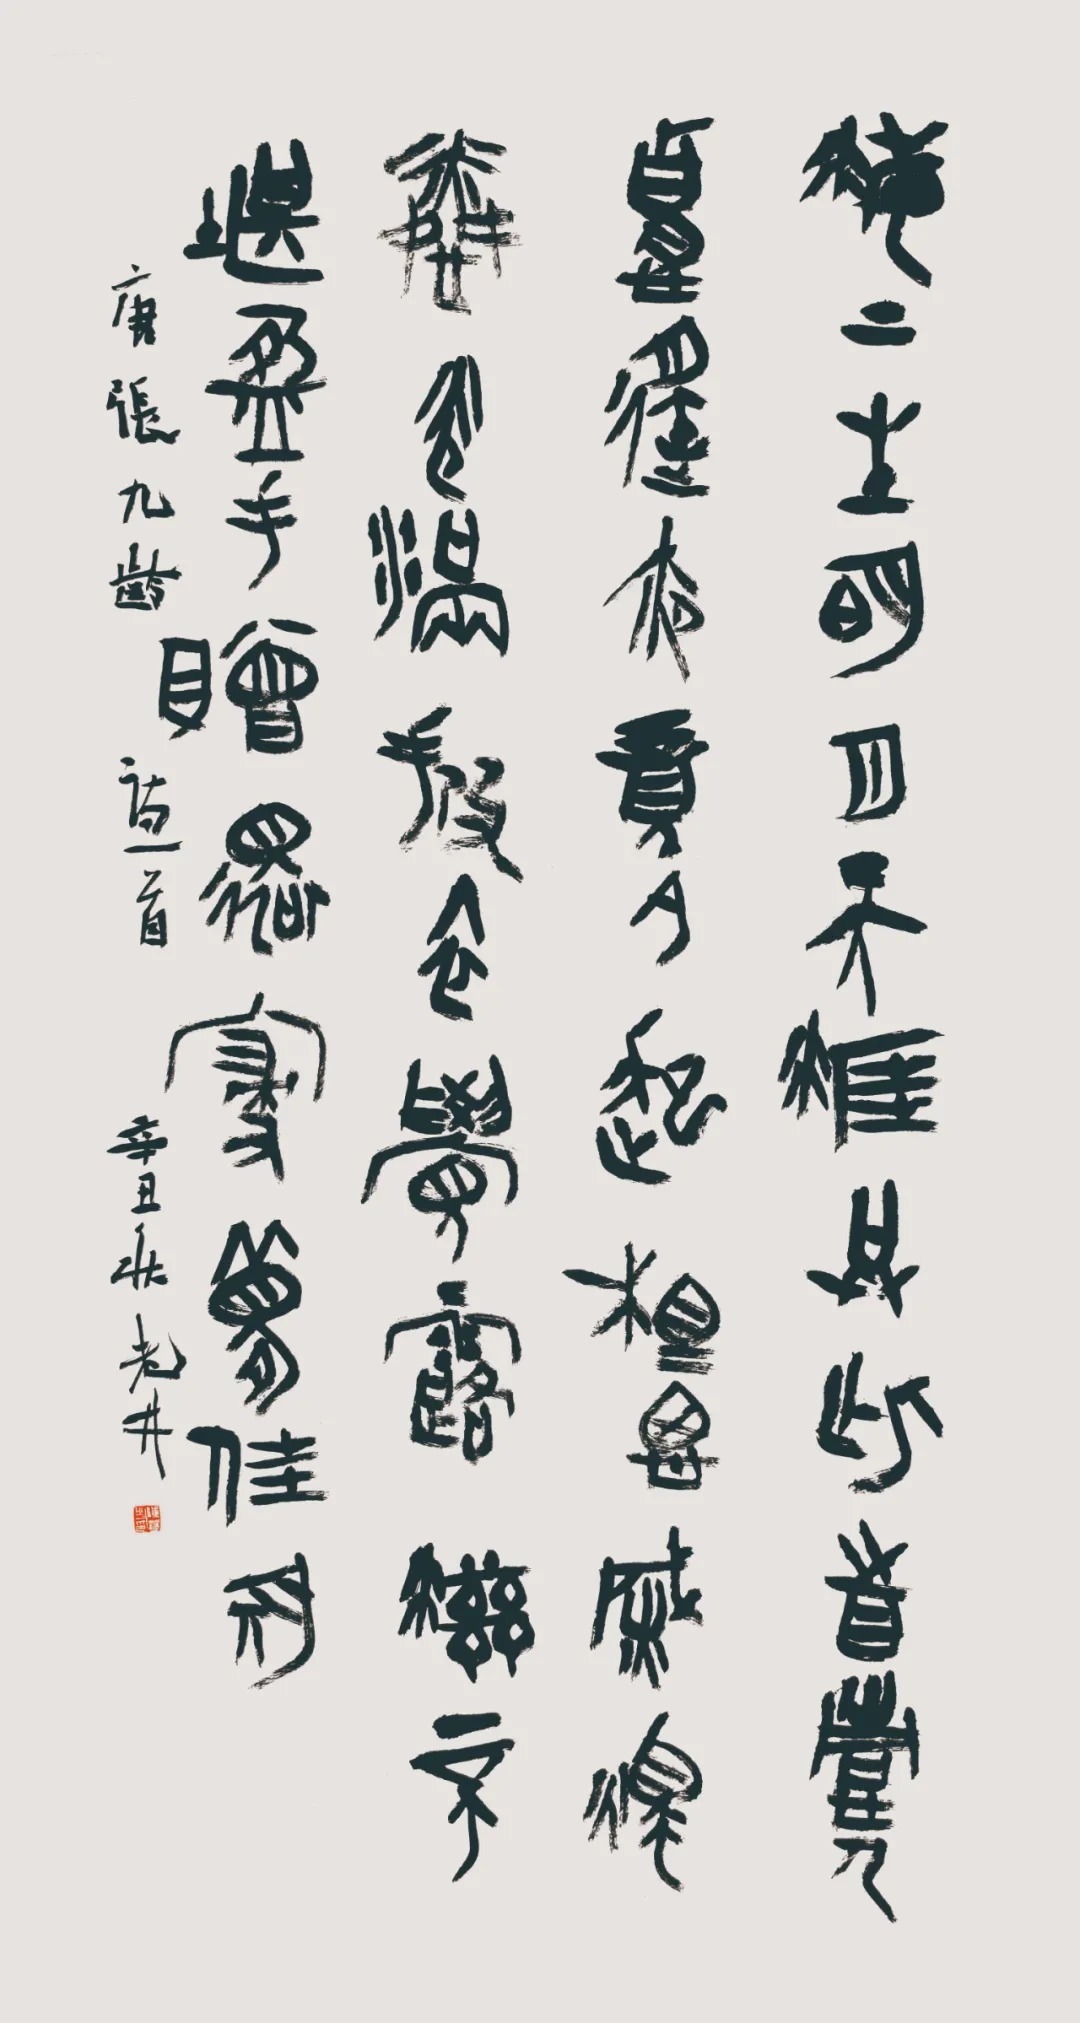 海上生明月天涯共此時情人
怨遙夜竟夕起相思滅燭
憐光滿披衣覺露滋不
堪盈手贈還寢夢佳期
唐張九齡詩一首 辛丑秋老井